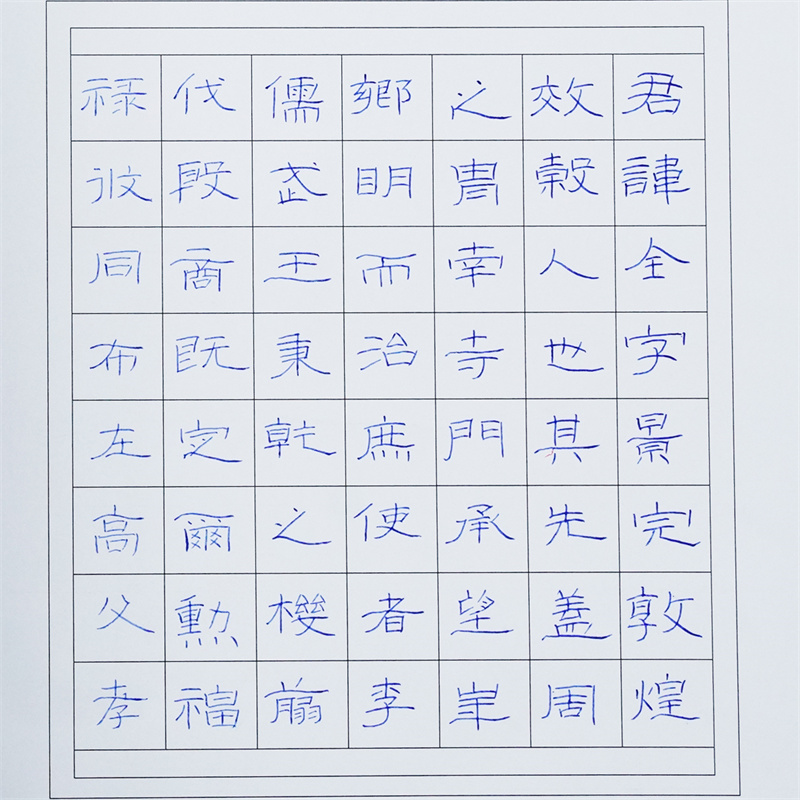 君諱全字景完敦煌
效穀人也其先蓋周
之胄幸寺門承望
鄉明而治庶使者李
儒武王秉乾之機翦
伐殷商既定爾勳福
禄攸同布左高父孝